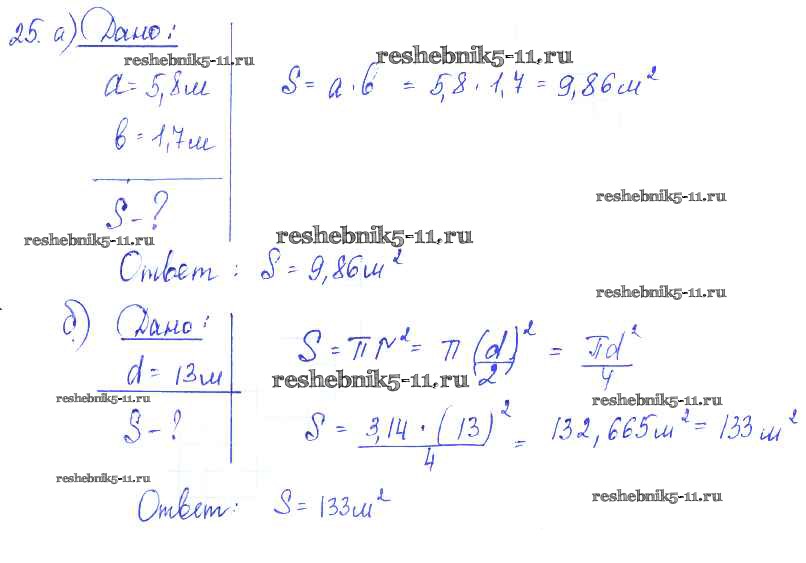 25. а) Дано:
reshebnik5-11.ru
reshebnik5-11.ru
a = 5,8 м
S = a · b = 5,8 · 1,7 = 9,86 м²
b = 1,7 м
reshebnik5-11.ru
S - ?
reshebnik5-11.ru
reshebnik5-11.ru
Ответ: S = 9,86 м²
reshebnik5-11.ru
б) Дано:
S = πr² = π (d/2)² = πd²/4
d = 13 м
reshebnik5-11.ru
reshebnik5-11.ru
reshebnik5-11.ru
S - ?
S = 3,14 · (13)²/4 = 132,665 м² = 133 м²
reshebnik5-11.ru
reshebnik5-11.ru
Ответ: S = 133 м²